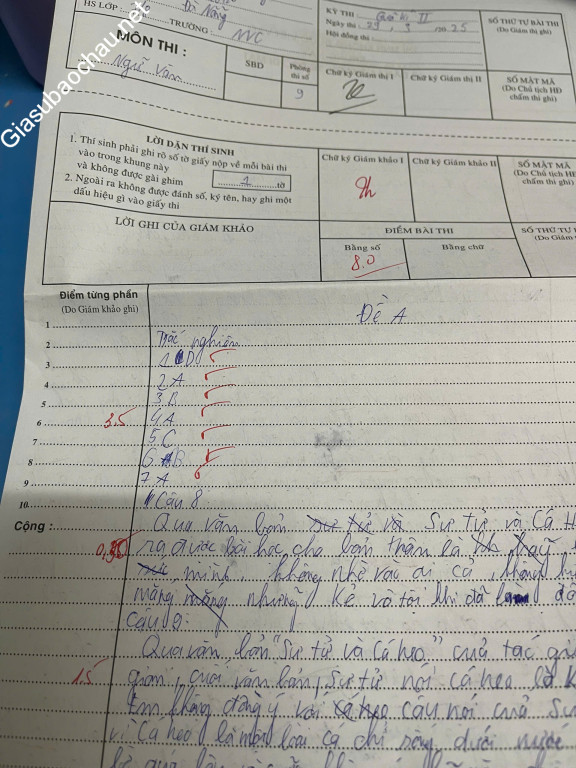 HS LỚP : 6 Đà Nẵng
TRƯỜNG NVC
MÔN THI :
Ngữ Văn
SBD
Phòng thi số
9
KỲ THI : Giữa kì II
Ngày thi : 25
Hội đồng thi :
Chữ ký Giám thị I
Chữ ký Giám thị II
SỐ THỨ TỰ BÀI THI
(Do Giám thị ghi)
SỐ MẬT MÃ
(Do Chủ tịch HĐ
chấm thi ghi)
Giasubaochau.net
LỜI DẶN THÍ SINH
1. Thí sinh phải ghi rõ số tờ giấy nộp về mỗi bài thi
vào trong khung này
và không được gài ghim
1 tờ
2. Ngoài ra không được đánh số, ký tên, hay ghi một
dấu hiệu gì vào giấy thi
Chữ ký Giám khảo I
Chữ ký Giám khảo II
SỐ MẬT MÃ
(Do Chủ tịch HĐ
chấm thi ghi)
LỜI GHI CỦA GIÁM KHẢO
ĐIỂM BÀI THI
Bằng số
Bằng chữ
8.0
SỐ THỨ TỰ
(Do Giám
Điểm từng phần
(Do Giám khảo ghi)
Đề A
1
2
Trắc nghiệm
3
1 D
4
2 A
5
3 B
6
3.5
4 A
7
5 C
8
6 B
9
7 A
10
Câu 8
Cộng :
Qua văn bản Sư tử và Cá H
ra được bài học cho bản thân là
mình, không nhờ vào ai cả,
những kẻ vô tội khi đã
Câu 9:
Qua văn bản "Sư tử và Cá heo" của tác gi
1.5
gian, cuối văn bản, Sư tử nói cá heo là k
Em không đồng ý với câu nói của Sư
vì Cá heo là một loài cá chỉ sống dưới nước